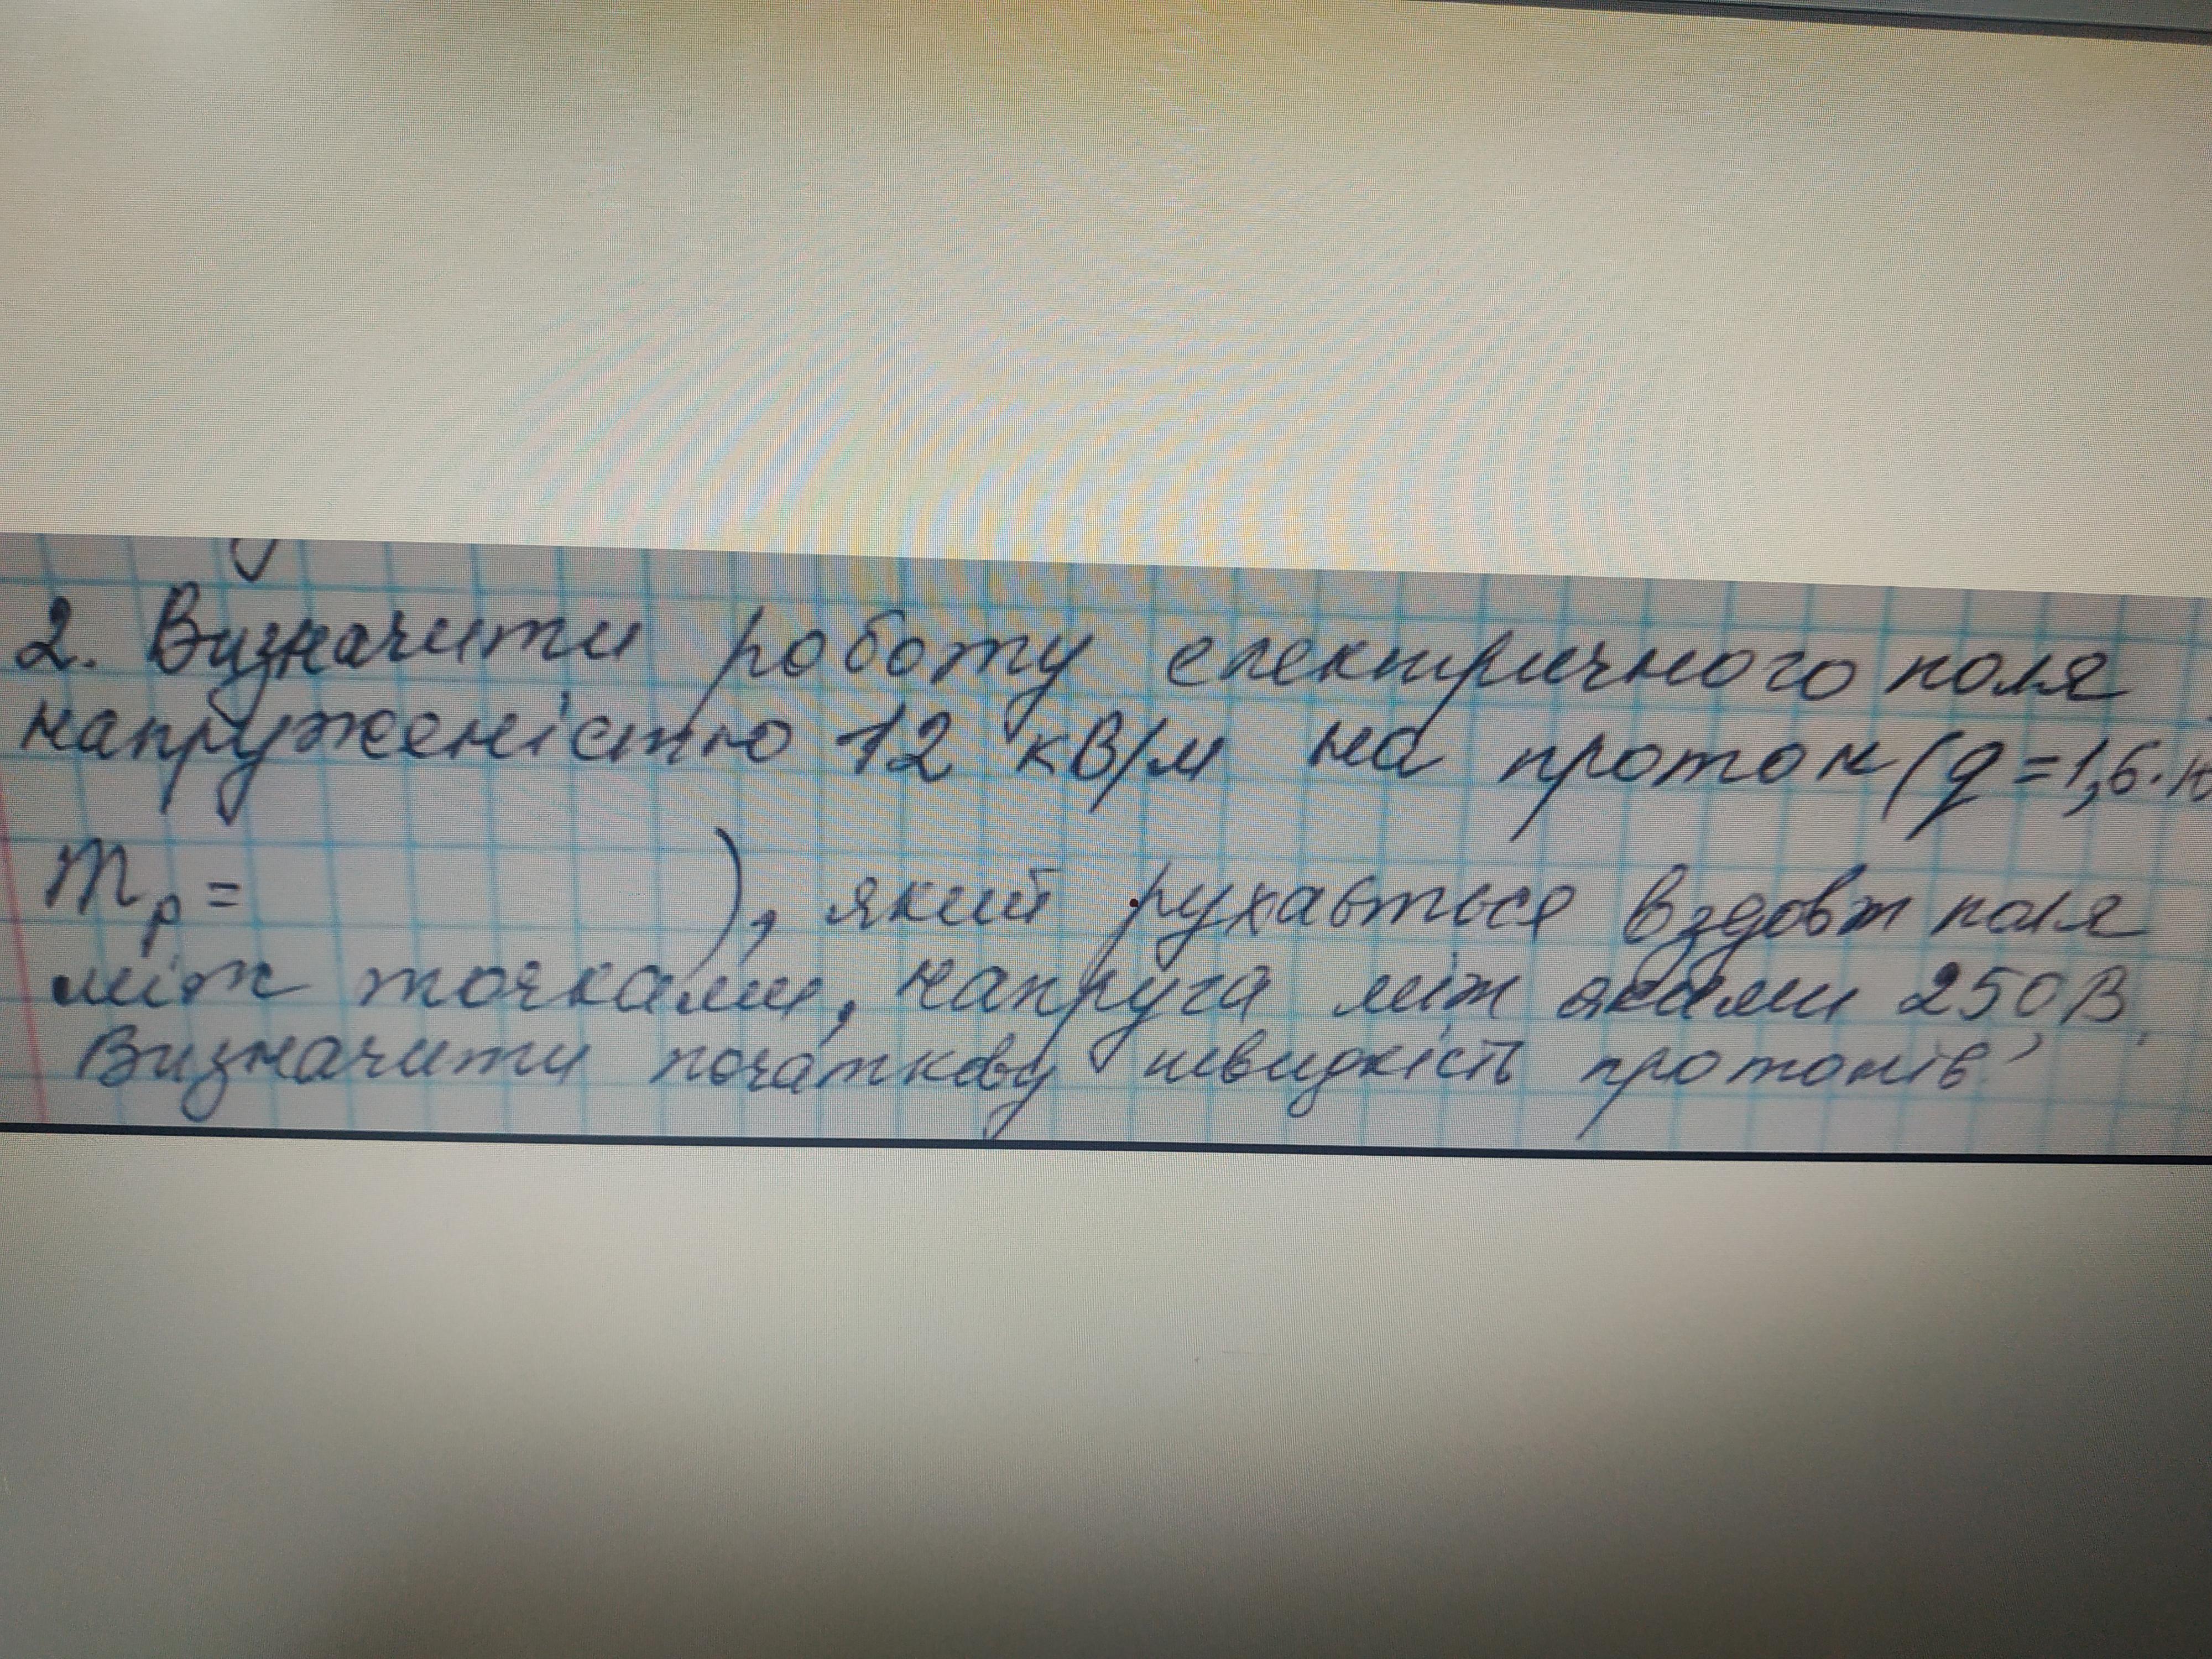 2. Визначити роботу електричного поля
напруженістю 12 кВ/м на протон (q = 1,6·10
m_p = ), який рухається вздовж поля
між точками, напруга між якими 250 В.
Визначити початкову швидкість протонів